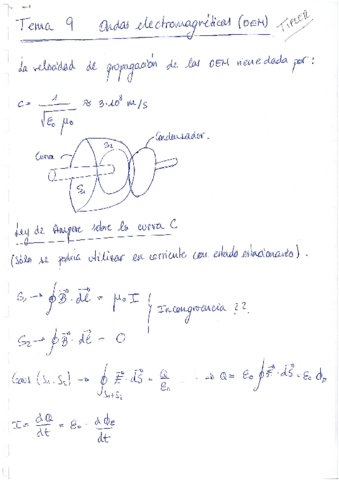 Tema 9 Ondas electromagnéticas (OEM) TIPLER
La velocidad de propagación de las OEM viene dada por:
C = 1/√(ε₀ μ₀) ≈ 3·10⁸ m/s
Condensador.
Curva
S₂
S₁
Ley de Ampere sobre la curva C
(Sólo se podría utilizar en corriente con estado estacionario).
S₁ → ∮B⃗·dl⃗ = μ₀ I
Incongruencia ??
S₂ → ∮B⃗·dl⃗ = 0
Gauss (S₁, S₂) → ∮_{S₁+S₂} E⃗·dS⃗ = Q/ε₀ ... → Q = ε₀ ∮E⃗·dS⃗ = ε₀ ϕ_E
I = dQ/dt = ε₀ · dϕ_E/dt